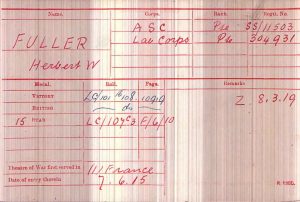 Name. Corps. Rank. Regtl. No.
FULLER A S C Pte SS/11503
Herbert W Lab Corps Pte 304931
Medal. Roll. Page. Remarks
VICTORY LC/101 10919 Z. 8.3.19
BRITISH do
15 STAR
Theatre of War first served in (1) France
Date of entry therein 7.6.15